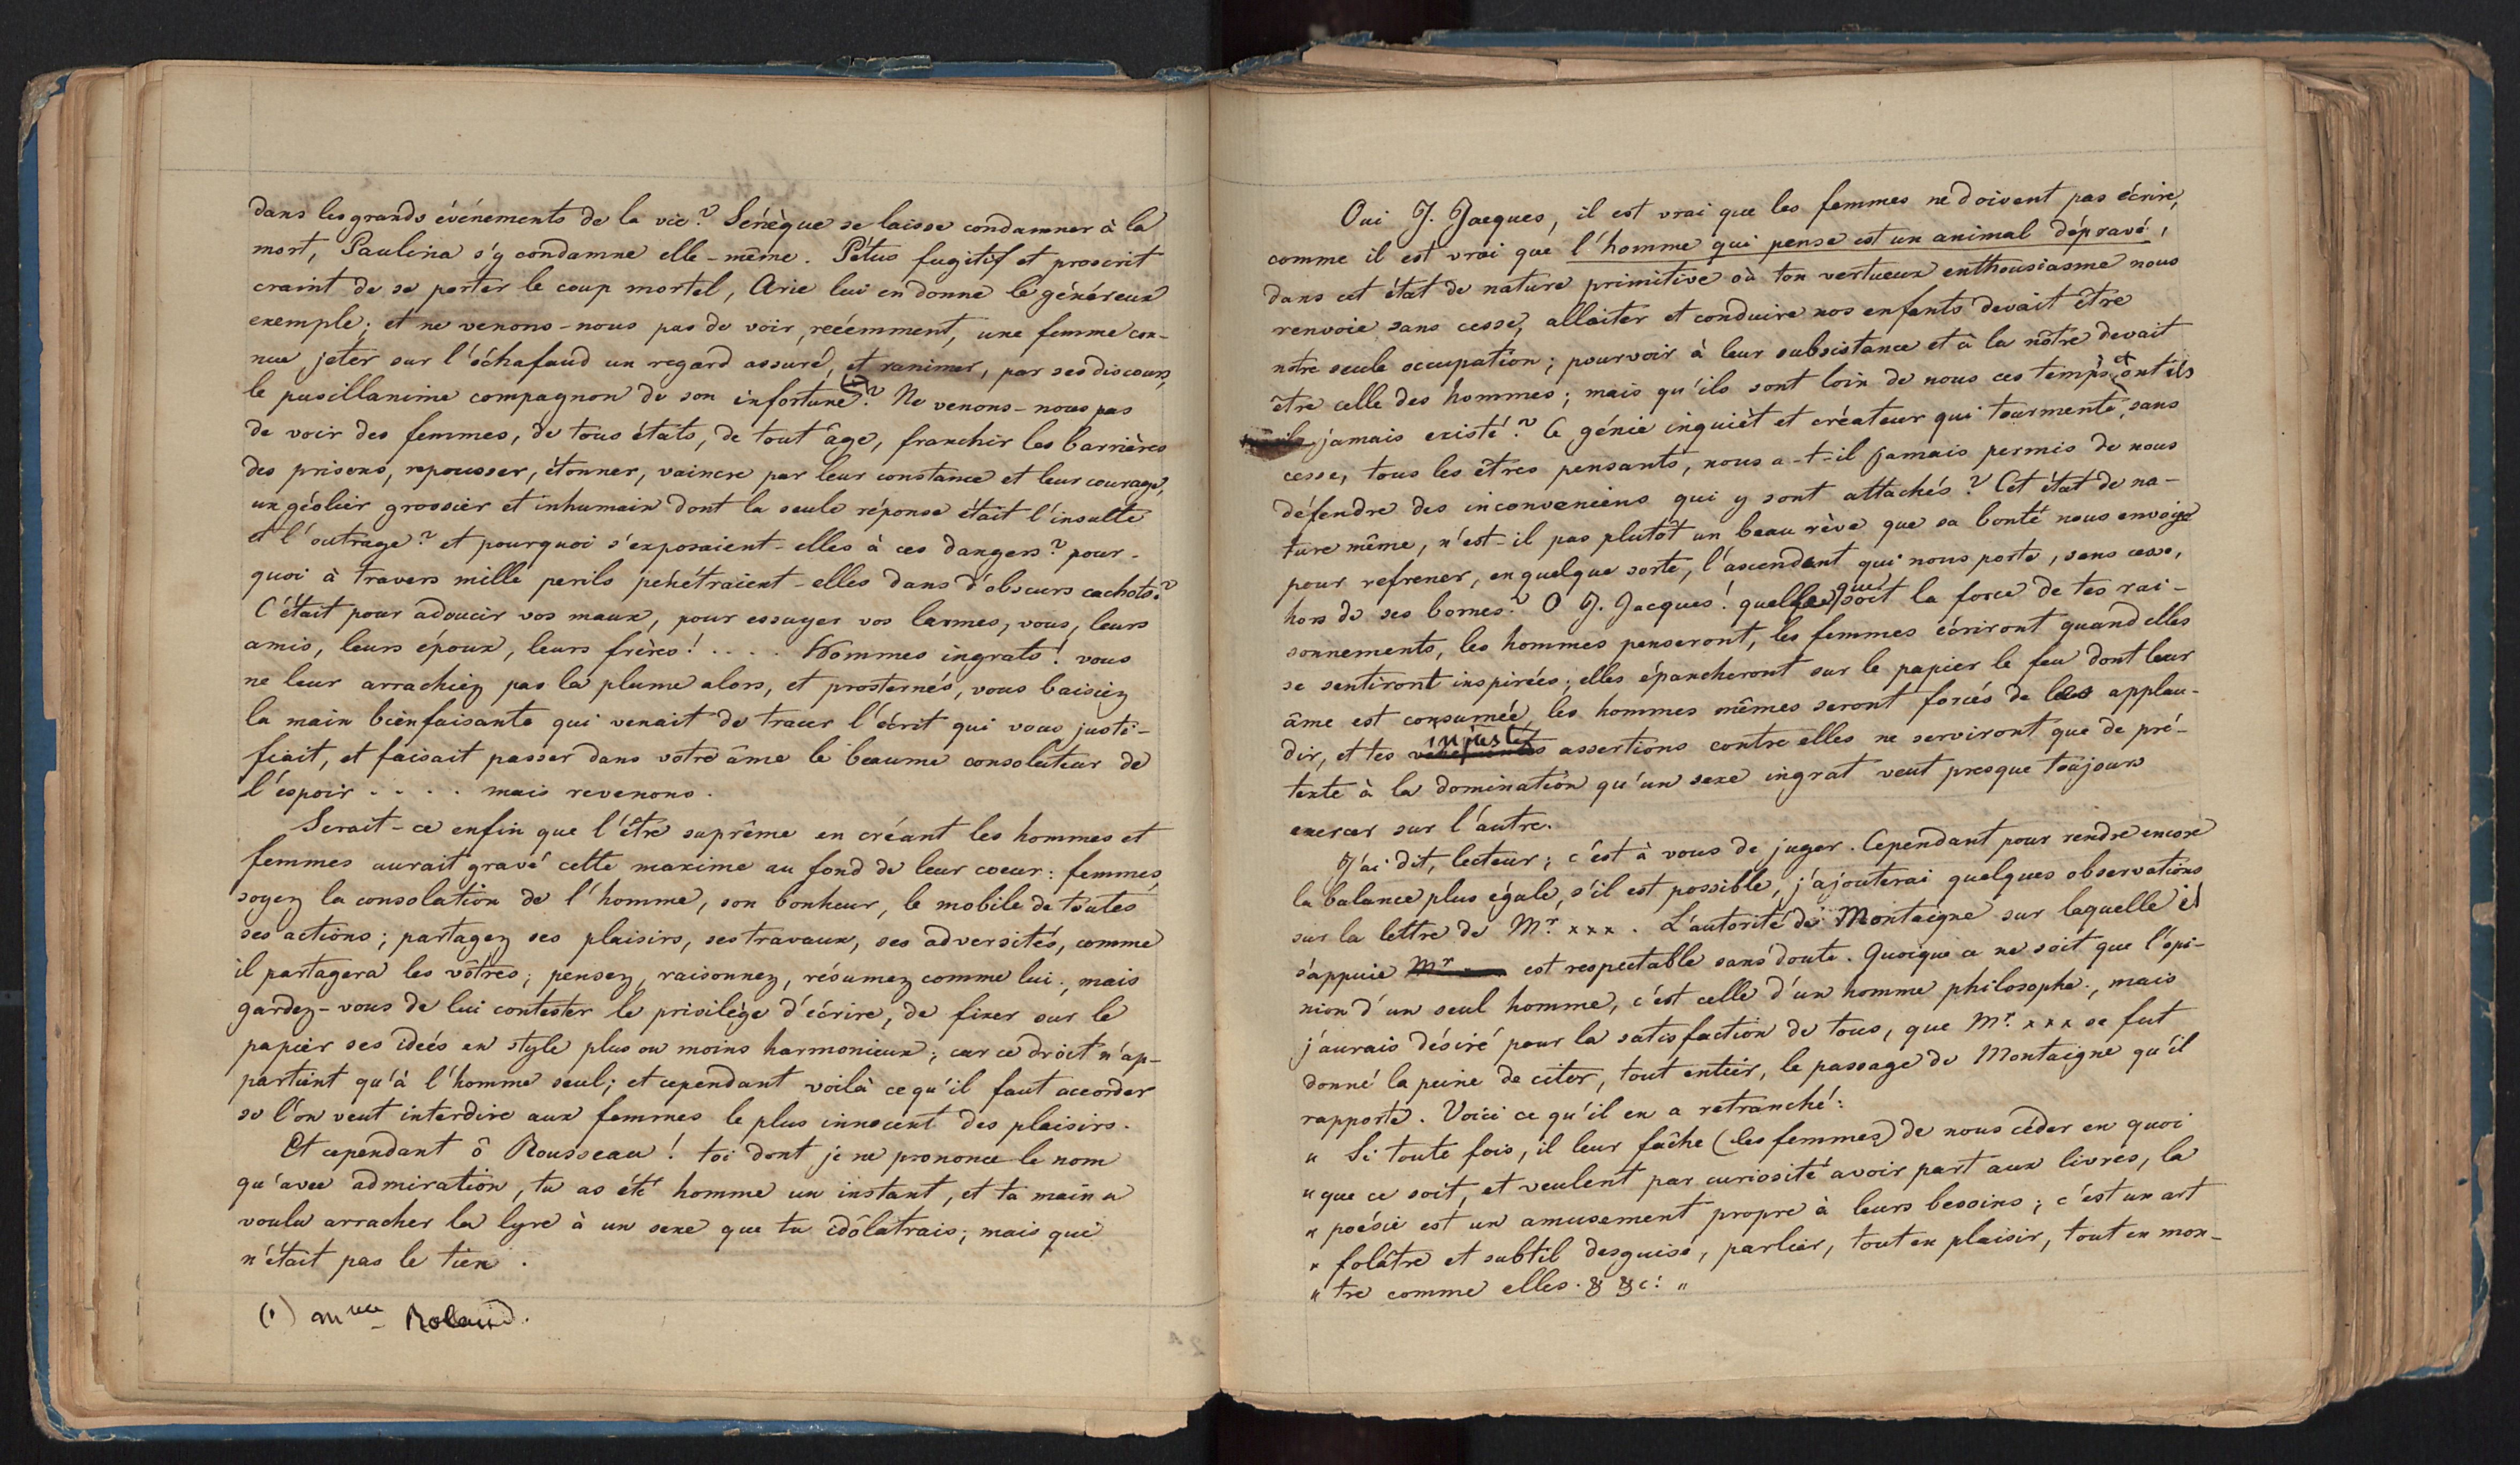 dans les grands événements de la vie? Sénèque se laisse condamner à la
mort, Paulina s'y condamne elle-même. Pétus fugitif et proscrit
craint de se porter le coup mortel, Arie lui en donne le généreux
exemple; et ne venons-nous pas de voir, récémment, une femme con-
nue jeter sur l'échafaud un regard assuré, et ranimer, par ses discours,
le pusillanime compagnon de son infortune (1)? Ne venons-nous pas
de voir des femmes, de tous états, de tout âge, franchir les barrières
des prisons, repousser, étonner, vaincre par leur constance et leur courage,
un géolier grossier et inhumain dont la seule réponse était l'insulte
et l'outrage? et pourquoi s'exposaient-elles à ces dangers? pour-
quoi à travers mille perils pénétraient-elles dans d'obscurs cachots?
C'était pour adoucir vos maux, pour essuyer vos larmes, vous, leurs
amis, leurs époux, leurs frères! .... Hommes ingrats! vous
ne leur arrachiez pas la plume alors, et prosternés, vous baisiez
la main bienfaisante qui venait de tracer l'écrit qui vous justi-
fiait, et faisait passer dans votre âme le beaume consolateur de
l'espoir .... mais revenons.
Serait-ce enfin que l'être suprême en créant les hommes et
femmes aurait gravé cette maxime au fond de leur coeur: femmes,
soyez la consolation de l'homme, son bonheur, le mobile de toutes
ses actions; partagez ses plaisirs, ses travaux, ses adversités, comme
il partagera les vôtres; pensez, raisonnez, résumez comme lui, mais
gardez-vous de lui contester le privilège d'écrire, de fixer sur le
papier ses idées en style plus ou moins harmonieux; car ce droit n'ap-
partient qu'à l'homme seul; et cependant voilà ce qu'il faut accorder
si l'on veut interdire aux femmes le plus innocent des plaisirs.
Et cependant ô Rousseau! toi dont je ne prononce le nom
qu'avec admiration, tu as été homme un instant, et ta main a
voulu arracher la lyre à un sexe que tu idôlatrais; mais que
n'était pas le tien.
(1) Mme Roland.
Oui J. Jacques, il est vrai que les femmes ne doivent pas écrire,
comme il est vrai que l'homme qui pense est un animal dépravé,
dans cet état de nature primitive où ton vertueux enthousiasme nous
renvoie sans cesse, allaiter et conduire nos enfants devait être
notre seule occupation; pourvoir à leur subsistance et à la nôtre devait
être celle des hommes; mais qu'ils sont loin de nous ces temps, et ont ils
jamais existé? Ce génie inquièt et créateur qui tourmente, sans
cesse, tous les êtres pensants, nous a-t-il jamais permis de nous
défendre des inconveniens qui y sont attachés? Cet état de na-
ture même, n'est-il pas plutôt un beau rève que sa bonté nous envoye
pour refrener, en quelque sorte, l'ascendant qui nous porte, sans cesse,
hors de ses bornes? O J. Jacques! quelle que soit la force de tes rai-
sonnements, les hommes penseront, les femmes écriront quand elles
se sentiront inspirées; elles épancheront sur le papier le feu dont leur
âme est consumée, les hommes mêmes seront forcés de les applau-
dir, et tes injustes assertions contre elles ne serviront que de pré-
texte à la domination qu'un sexe ingrat veut presque toujours
exercer sur l'autre.
J'ai dit, lecteur; c'est à vous de juger. Cependant pour rendre encore
la balance plus égale, s'il est possible, j'ajouterai quelques observations
sur la lettre de Mr. xxx. L'autorité de Montaigne sur laquelle il
s'appuie Mr est respectable sans doute. Quoique ce ne soit que l'opi-
nion d'un seul homme, c'est celle d'un homme philosophe, mais
j'aurais désiré pour la satisfaction de tous, que Mr. xxx se fut
donné la peine de citer, tout entier, le passage de Montaigne qu'il
rapporte. Voici ce qu'il en a retranché:
" Si toute fois, il leur fâche (les femmes) de nous céder en quoi
" que ce soit, et veulent par curiosité avoir part aux livres, la
" poésie est un amusement propre à leurs besoins; c'est un art
" folâtre et subtil desguisé, parlier, tout en plaisir, tout en mon-
" tre comme elles. & &c: "